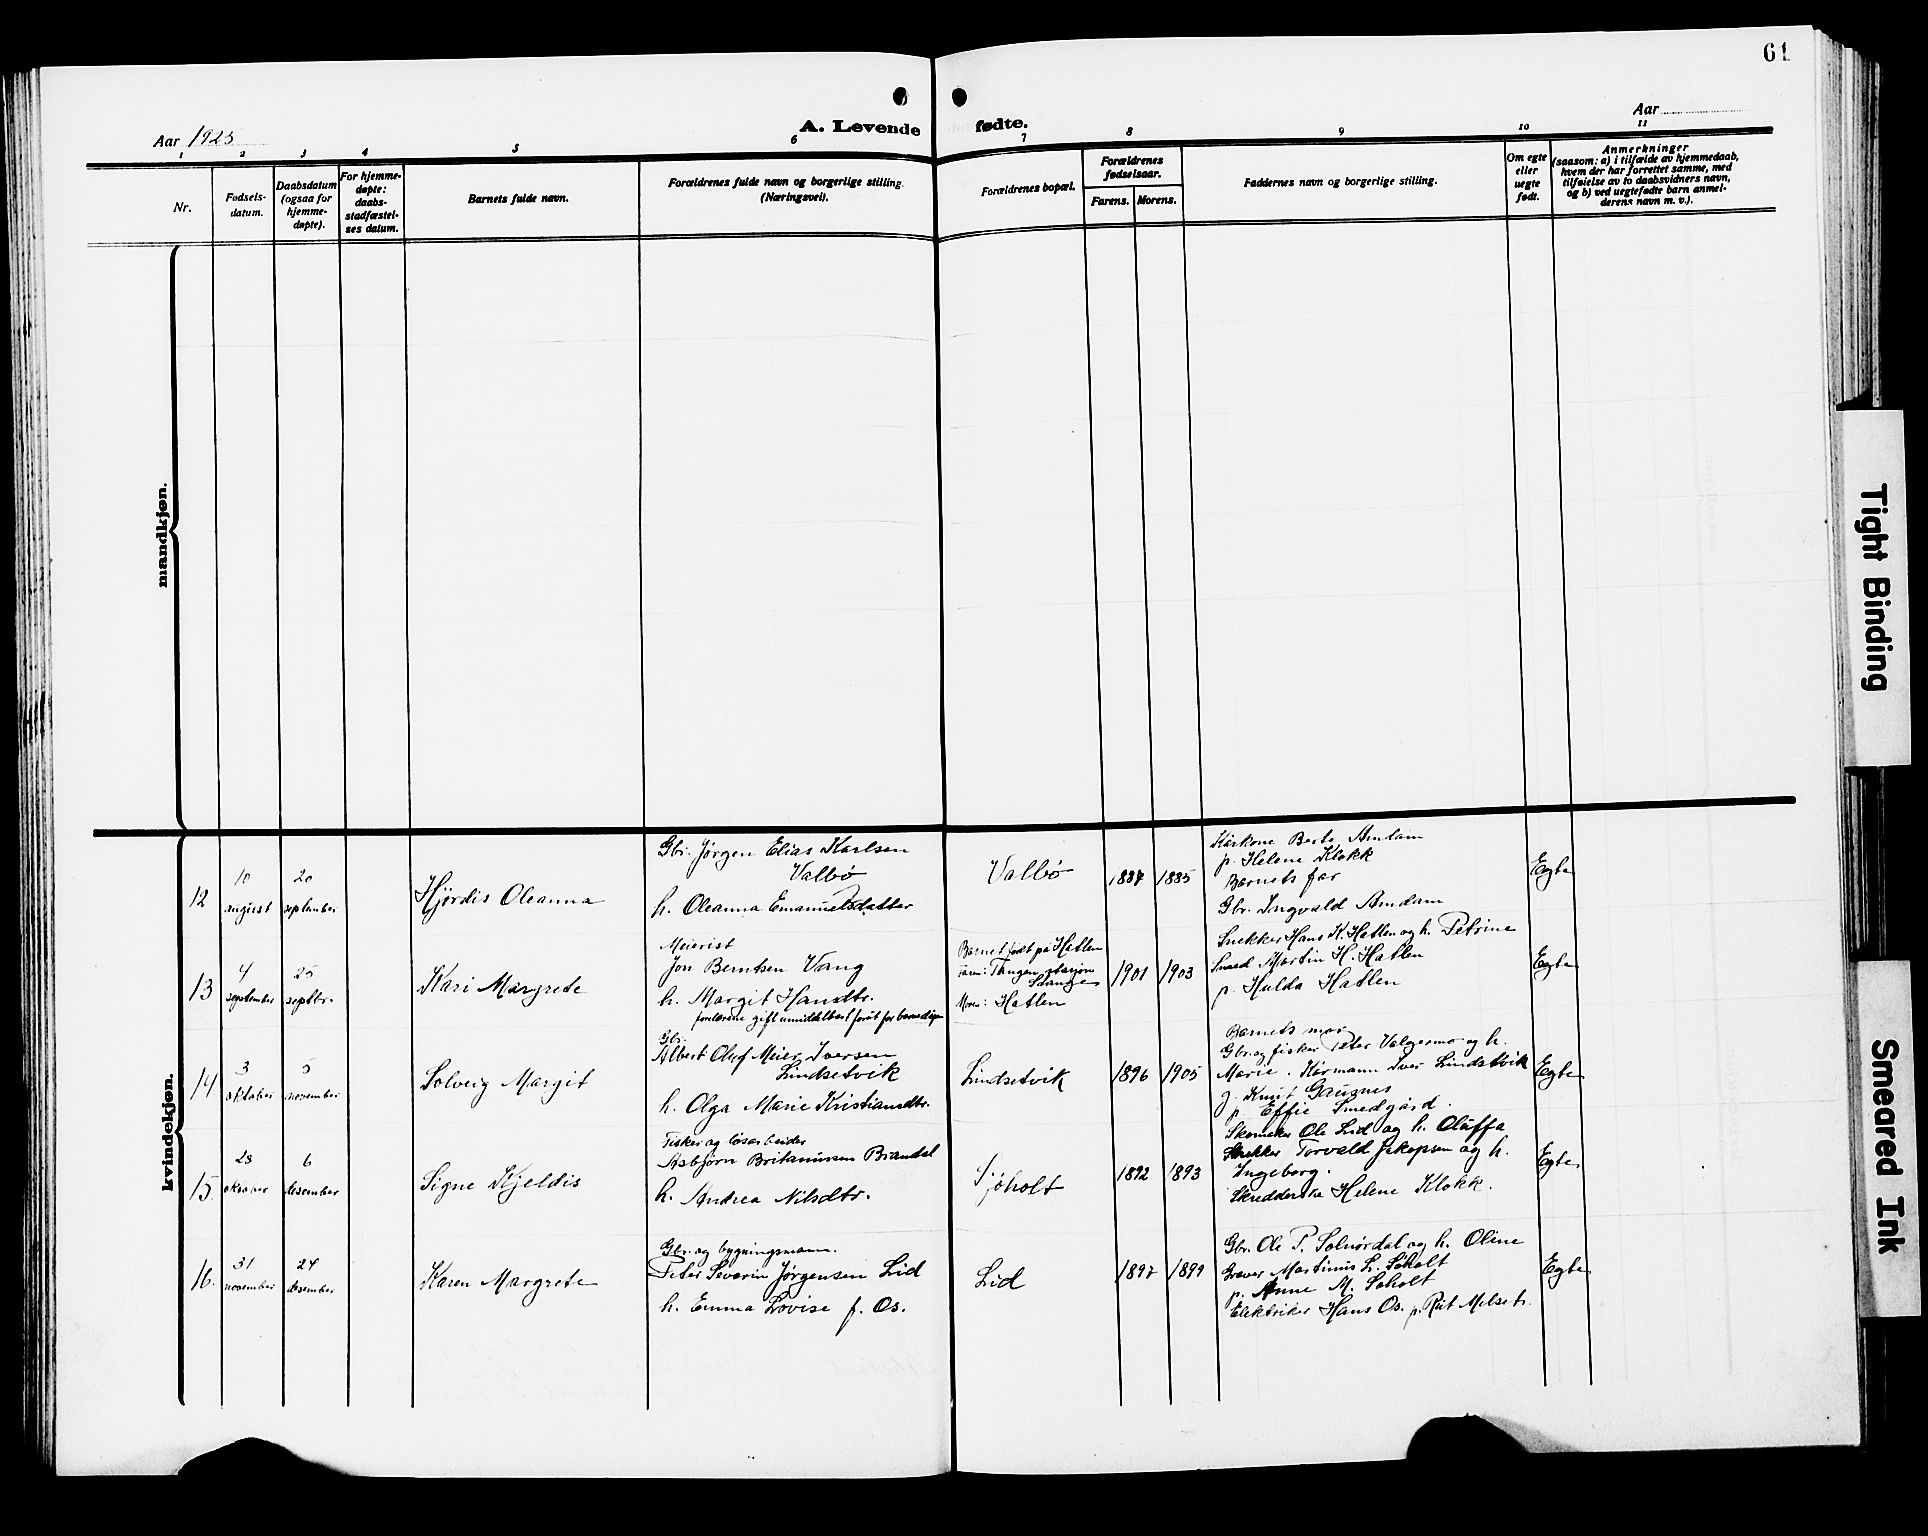 61
Aar 1925
A. Levende fødte.
Aar
1 2 3 4 5 6 7 8 9 10 11
Nr.
Fødsels-
datum.
Daabsdatum
(ogsaa for
hjemme-
døpte).
For hjemme-
døpte:
daabs-
stadfæstel-
ses datum.
Barnets fulde navn.
Forældrenes fulde navn og borgerlige stilling.
(Næringsvei).
Forældrenes bopæl.
Forældrenes
fødselsaar.
Farens. Morens.
Faddernes navn og borgerlige stilling.
Om egte
eller
uegte
født.
Anmerkninger
(saasom: a) i tilfælde av hjemmedaab,
hvem der har forrettet samme, med
tilføielse av to daabsvidners navn,
og b) ved uegtefødte barn anmel-
derens navn m. v.).
mandkjøn.
kvindekjøn.
12
10
august
20
september
Hjørdis Oleanna
Gbr. Jørgen Elias Karlsen
Valbø
h. Oleanna Emanuelsdatter
Valbø
1884 1885
Kårkone Berte Amdam
p. Helene Klokk
Barnets far
Gbr. Ingvald Amdam
Egte
13
4
september
25
septbr.
Kari Margrete
Meierist
Jon Berntsen Vang
h. Margit Hansdtr.
foreldrene gift umiddelbart forut for barnedåpen
Barnet født på Hatlen
Faren: Tangen stasjon
Stange
Moren: Hatlen
1901 1903
Snekker Hans K. Hatlen og h. Petrine
Smed Martin H. Hatlen
p. Hulda Hatlen
Egte
14
3
oktober
5
november
Solveig Margit
Gbr.
Albert Oluf Meier Iversen
Lindsetvik
h. Olga Marie Kristiansdtr.
Lindsetvik
1896 1905
Barnets mor
Gbr. og fisker Peter Valgermo og h.
Marie. Kårmann Iver Lindsetvik
g. Knut Gausnes
p. Effie Smedgård.
Egte
15.
28
oktober
6
desember
Signe Kjeldis
Fisker og løsarbeider
Asbjørn Britanusen Brandal
h. Andrea Nilsdtr.
Sjøholt
1892 1893
Skomaker Ole Lid og h. Oluffa
Snekker Torvald Jakopsen og h.
Ingeborg.
Skredderske Helene Klokk.
Egte
16.
31
november
24
desember
Karen Margrete
Gbr. og bygningsmann.
Peter Severin Jørgensen Lid
h. Emma Lovise f. Os.
Lid
1897 1899
Gbr. Ole P. Solnørdal og h. Oline
Graver Martinus L. Søholt
p. Anne M. Søholt
Elektriker Hans Os. p. Rut Melset.
Egte
Tight Binding
Smeared Ink